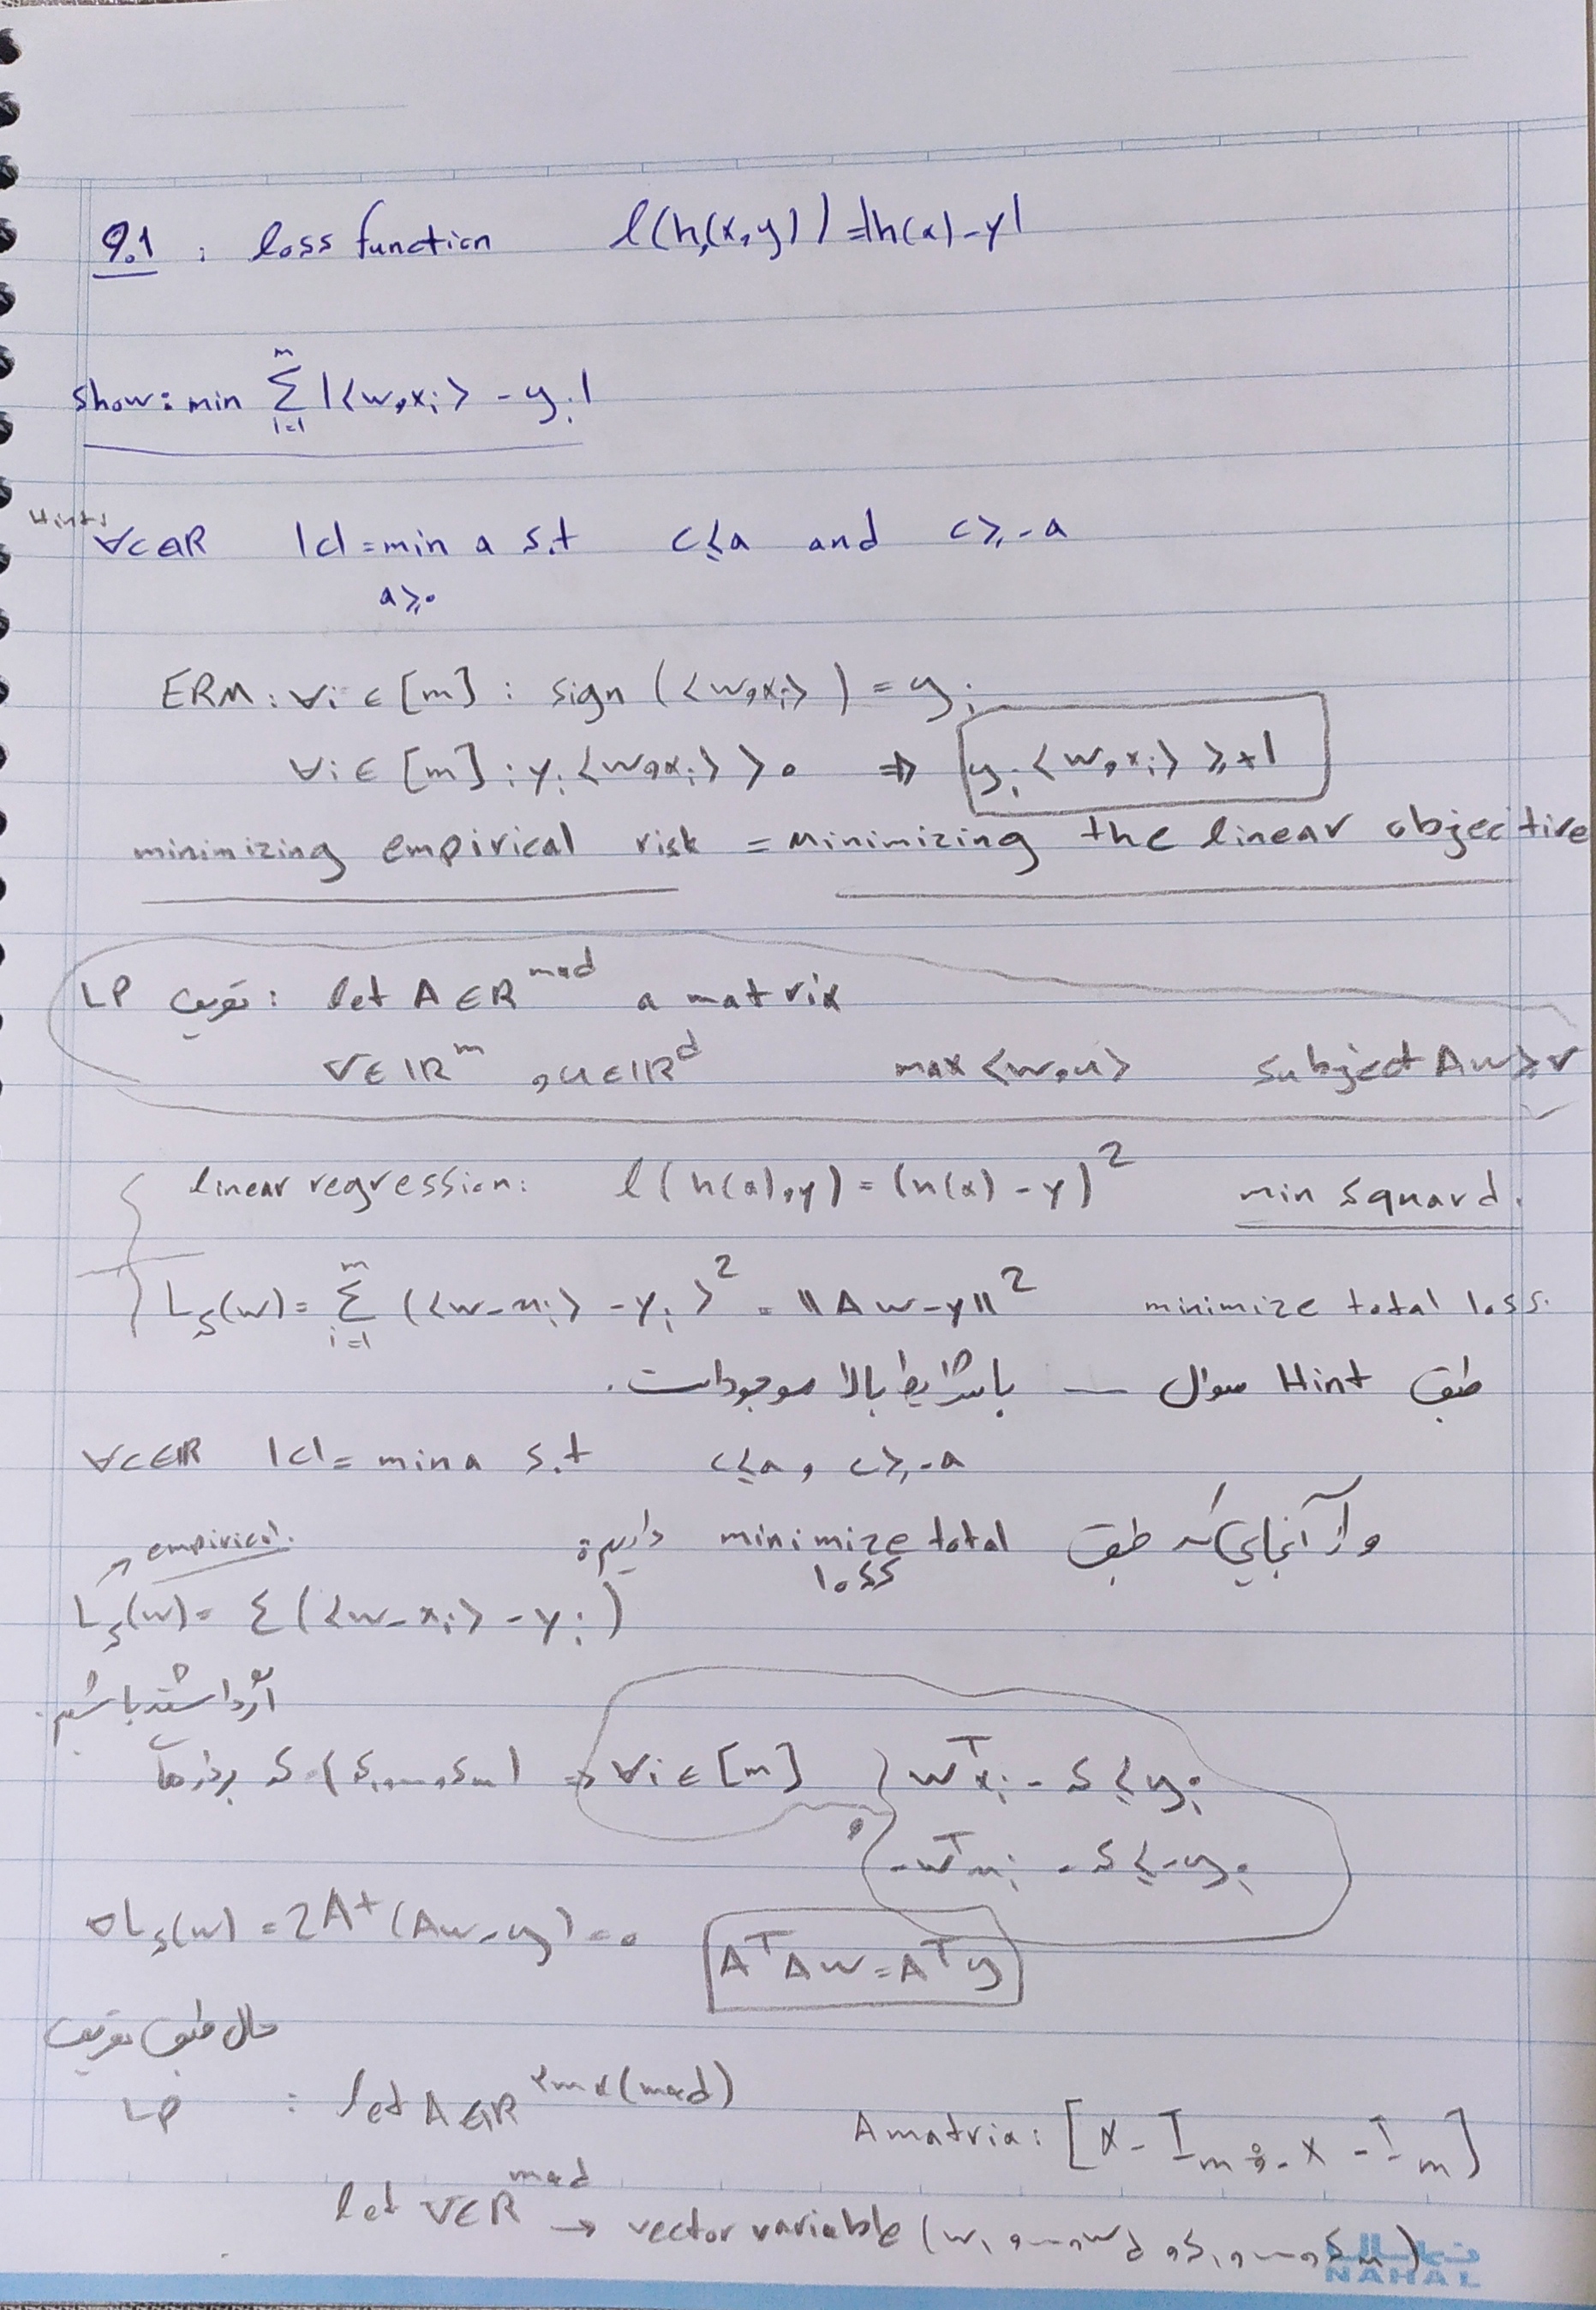 9.1 : loss function l(h,(x,y)) = |h(x)-y|
show: min Σ_{i=1}^{m} |<w,x_i> - y_i|
Hint:
∀c∈R |c| = min a s.t c≤a and c≥-a
a≥0
ERM: ∀i ∈ [m] : sign (<w,x_i>) = y_i
∀i ∈ [m] : y_i <w,x_i> > 0 ⇒ y_i <w,x_i> ≥ +1
minimizing empirical risk = Minimizing the linear objective
LP تعریف : let A∈R^{m×d} a matrix
v∈IR^m , u∈IR^d max <w,u> subject Aw≥v
linear regression: l(h(x),y) = (h(x)-y)^2 min squard.
L_s(w) = Σ_{i=1}^{m} (<w-x_i> - y_i)^2 = ||Aw-y||^2 minimize total loss.
طبق Hint سوال — با شرایط بالا موجود است.
∀c∈R |c| = min a s.t c≤a , c≥-a
و از آنجایی که طبق minimize total loss داریم:
→ empirical.
L_s(w) = Σ(<w-x_i> - y_i)
اگر داشته باشیم.
بردارها S=(S_1,...,S_m) ⇒ ∀i ∈ [m] { w^T x_i - S ≤ y_i
-w^T x_i - S ≤ -y_i
∇L_s(w) = 2A^t(Aw-y) = 0 A^T A w = A^T y
حال طبق تعریف
LP : let A∈R^{۲m×(m+d)} A matrix: [X - I_m ; -X - I_m]
let v∈R^{m+d} → vector variable (w_1,...,w_d,S_1,...,S_m)
نهال
NAHAL